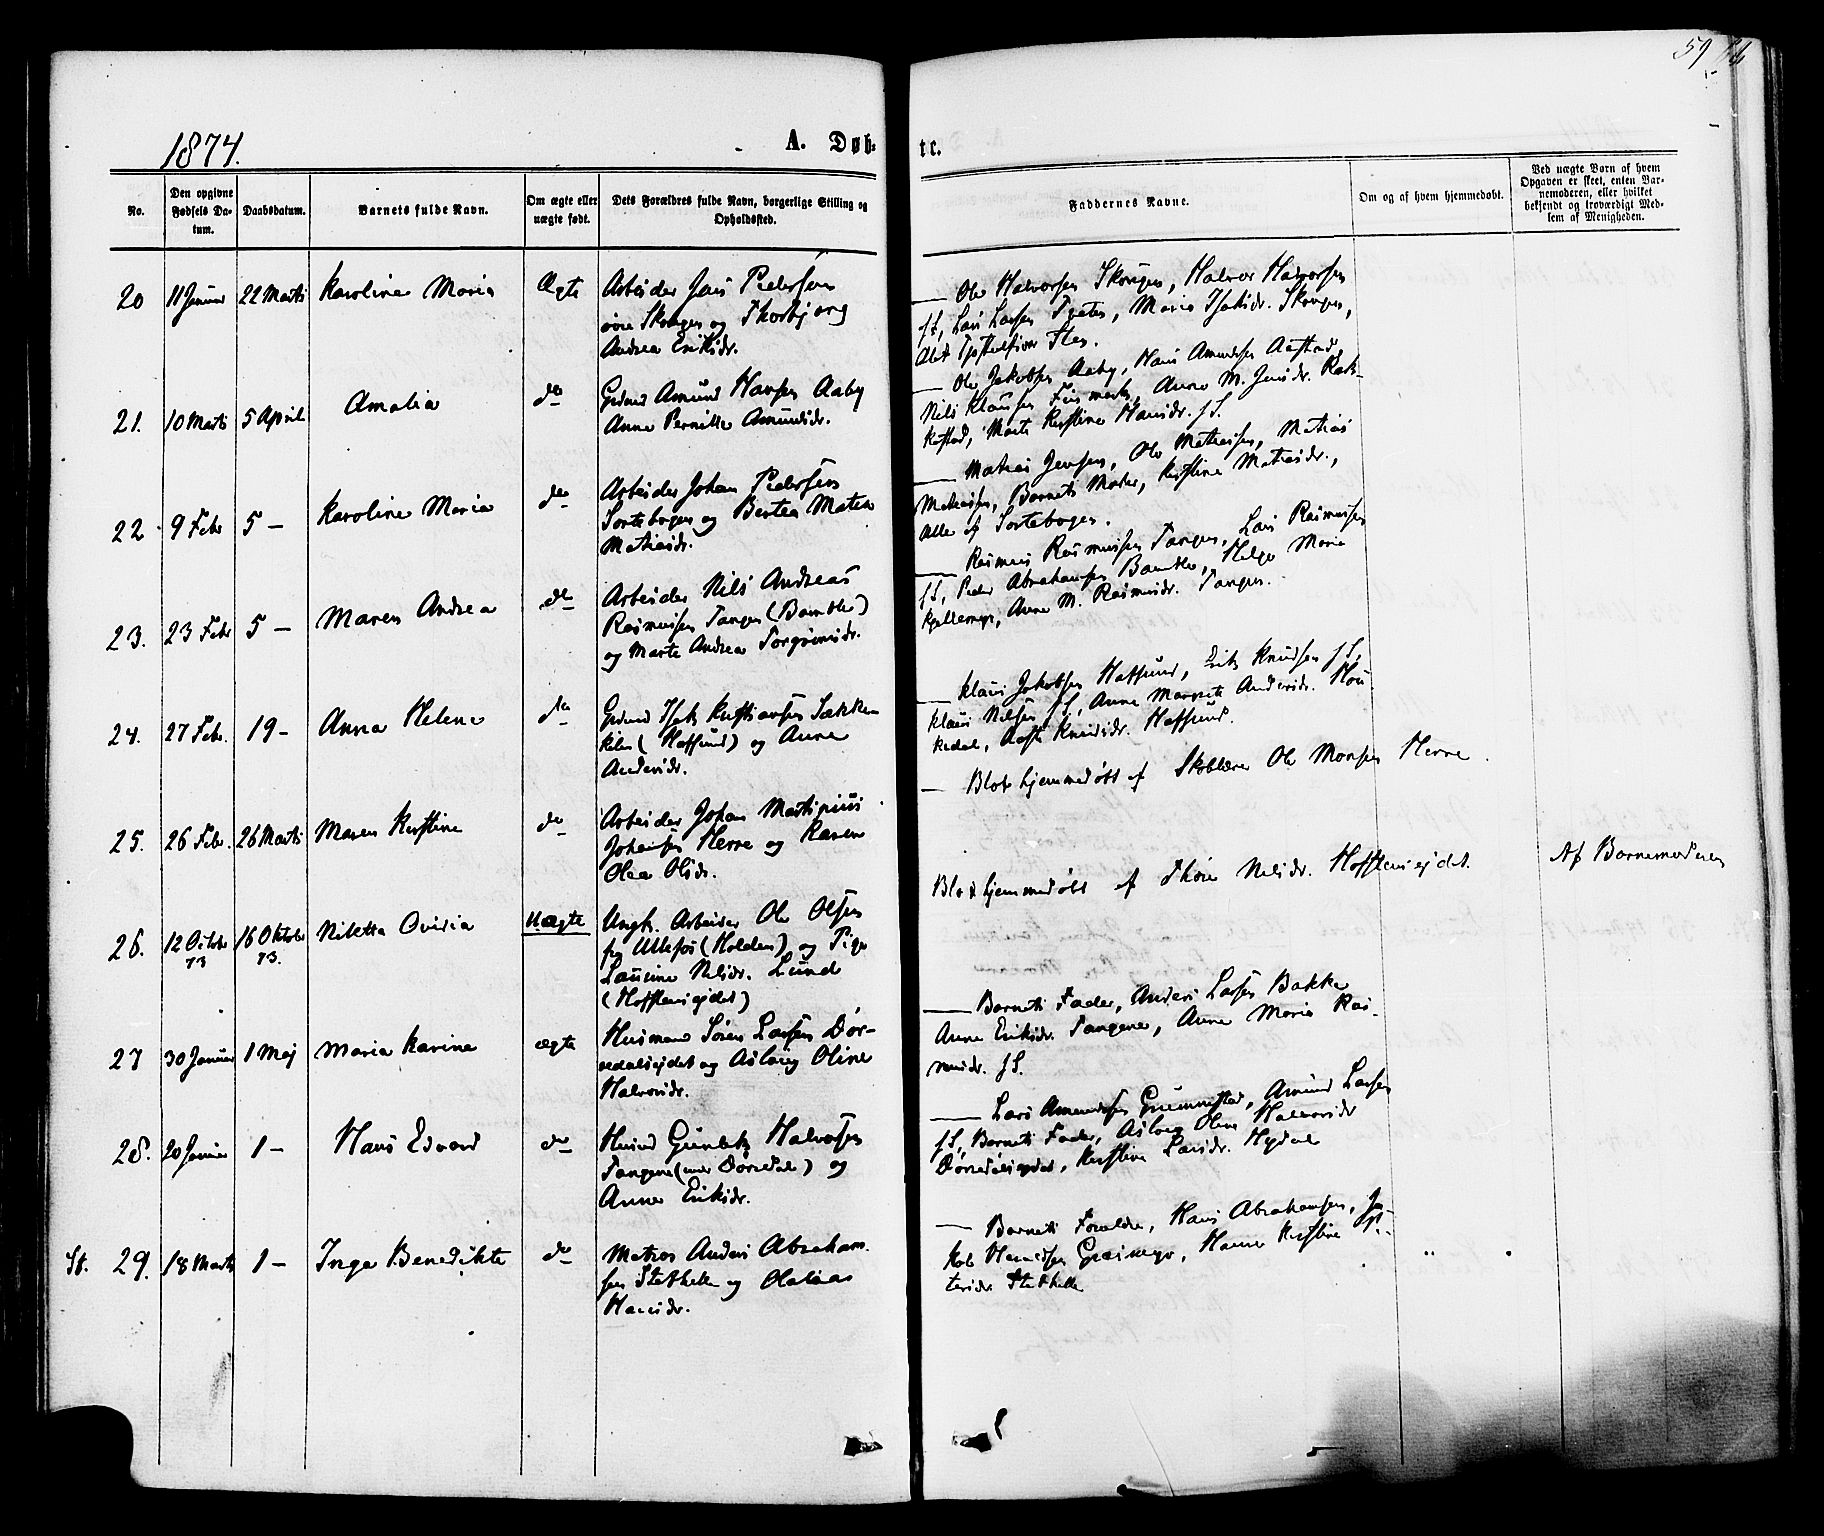 59
1874.
A. Døb-
te.
No.
Den opgivne Fødsels Datum.
Daabsdatum.
Barnets fulde Navn.
Om ægte eller uægte født.
Dets Forældres fulde Navn, borgerlige Stilling og Opholdssted.
Faddernes Navne.
Om og af hvem hjemmedøbt.
Ved uægte Barn af hvem Opgaven er skeet, enten Barnemoderen, eller hvilket bekjendt og troværdigt Medlem af Menigheden.
20 11 Januar 22 Marts Karoline Maria Ægte
Arbeider Jens Pedersen
øvre Skougen og Thorbjørg
Andrea Eriksdr.
Ole Halvorsen Skougen, Halvor Halvorsen
sS, Lars Larsen Tveten, Maria Isaksdr. Skougen,
21. 10 Marts 5 April Amalia do
Grdmd Amund Hansen Aaby
Anne Pernille Amundsdr.
Ole Jakobsen Aaby, Hans Amundsen
Nils Klausen Anne M. Jensdr.
Marte Kirstine Hansdr. sS.
22. 9 Febr 5 — Karoline Maria do
Arbeider Johan Pedersen
Sortebogen og Berthea Mathea
Matiasdr.
Matias Jensen, Ole Mathisen, Matias
Mathisen, Barnets Moder, Kirstine Matiasdr.,
Alle af Sortebogen.
23. 23 Febr 5 — Maren Andrea do
Arbeider Nils Andreas
Rasmussen Tangen (Bamble)
og Marte Andrea Torgrimsdr.
Rasmus Rasmussen Tangen, Lars Rasmussen
sS, Peder Abrahamsen Bamble, Helge Marie
Kjellemyr, Anne M. Rasmusdr. Tangen.
24. 27 Febr. 19 — Anna Helene do
Grdmd Isak Kristiansen
(Hafsund) og Anne
Andersdr.
Klaus Jakobsen Hafsund, Erik Knudsen sS,
Klaus Nilsen sS, Anne Margrete Andersdr.
Knudsdr. Hafsund.
25. 26 Febr. 26 Marts Maren Kirstine do
Arbeider Johan Martinius
Johansen Herre og Karen
Olea Olsdr.
Blot hjemmedøbt af Skolelærer Ole Monsen Herre.
26. 12 Octobr 73 16 Oktober 73. Niletta Ovidia Uægte
Ungk. Arbeider Ole Olsen
fra Ullefos (Holden) og Pige
Laurine Nilsdr. Lund
Blot hjemmedøbt af Thore Nilsdr.
Af Barnemoderen
27 30 Januar 1 Maj Maria Karine ægte
Husmand Søren Larsen Dør-
sdalsejdet og Aslaug Oline
Halvorsdr.
Barnets Fader, Anders Larsen Bakke
Anne Eriksdr. Tangene, Anne Maria Ras-
musdr. sS.
28. 20 Januar 1 — Hans Edvard do
Husmd Gunleik Halvorsen
Tangene (under Dørsdal) og
Anne Eriksdr.
Lars Amundsen Grummestad, Amund Larsen
sS, Barnets Fader, Aslaug Oline Halvorsdr
Dørsdalsejdet, Kirstine Larsdr.
St. 29. 18 Marts 1 — Inga Benedikte do
Matros Anders Abraham-
sen Stathelle og Olava
Hansdr.
Barnets Forældre, Hans Abrahamsen, Ja-
kob Hansen Hanna Kirstine Pe-
tersdr. Stathelle